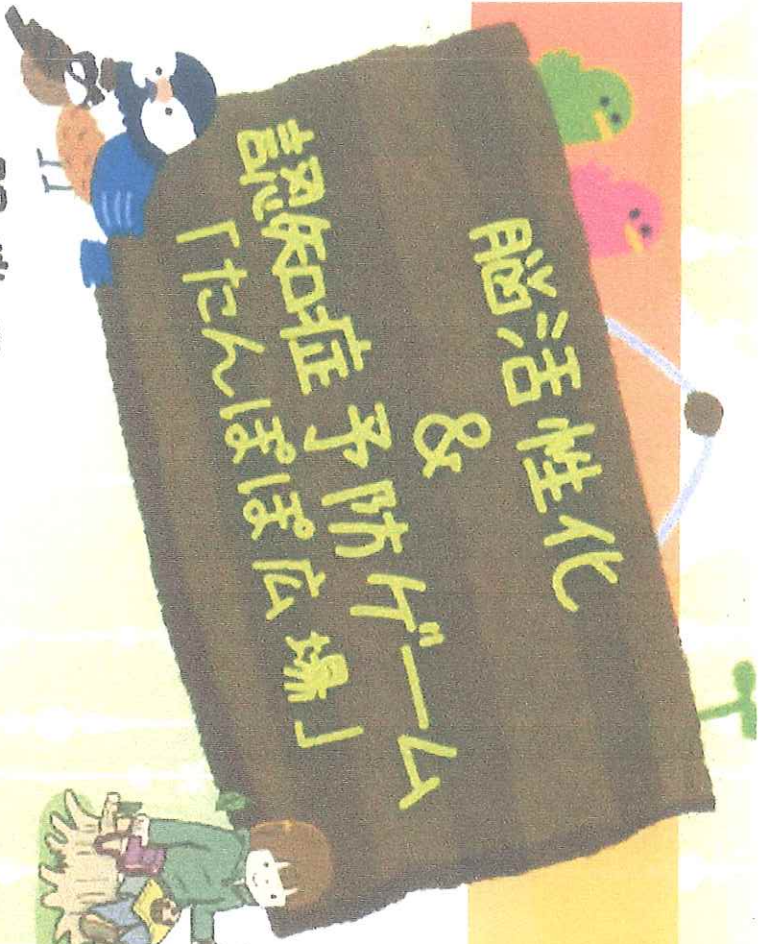 脳活性化
&
認知症予防ゲーム
「たんぽぽ広場」